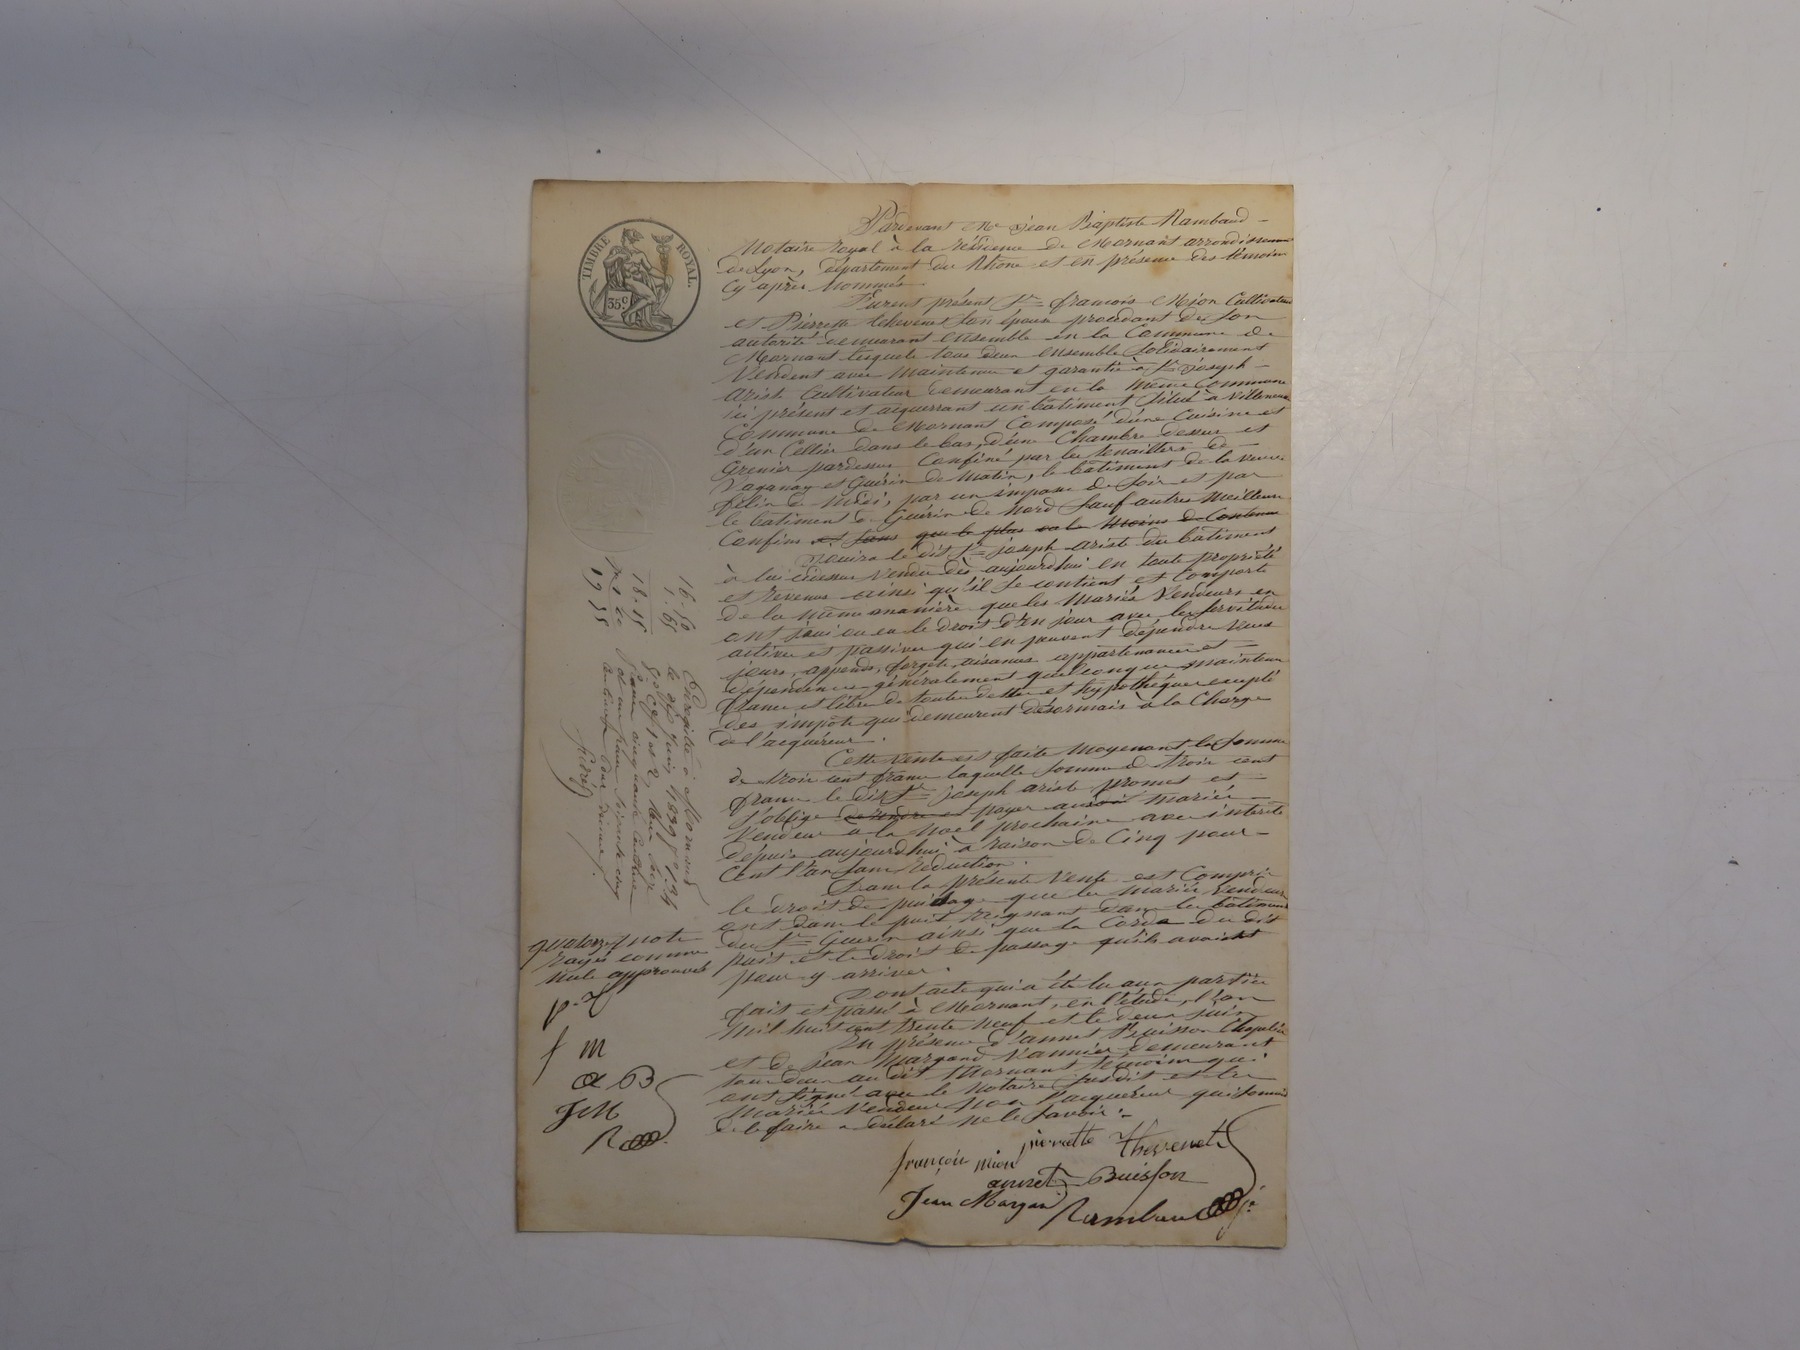 TIMBRE ROYAL.
35c
Pardevant Me Jean Baptiste Rambaud
Notaire royal à la résidence de Mornant arrondissement
de Lyon, département du Rhône et en présence des témoins
cy après nommés.
Furent présent Sr françois Mion Cultivateur
et Pierrette thevenet son épouse procédant de son
autorité demeurant ensemble en la Commune de
Mornant lesquels tous deux ensemble solidairement
Vendent avec maintenue et garantie à Sr Joseph
ariste Cultivateur demeurant en la même Commune
ici présent et acquerrant un bâtiment situé à Villeneuve
Commune de Mornant Composé d'une Cuisine et
d'un Cellier dans le bas, d'une Chambre dessus et
Grenier pardessus Confiné par les tenailliers de
Vaganay et Guérin de Matin, le bâtiment de la veuve
félin de Midi, par un impasse de Soir et par
le bâtiment de Guérin de Nord Sauf autres Meilleurs
Confins et sans que le plus ou le moins de Contenue
Jouira le dit Sr Joseph ariste du bâtiment
à lui cidessus vendu dès aujourdhui en toute propriété
et revenus ainsi qu'il se contient et Comporte
de la même manière que les Mariés Vendeurs en
ont joui ou eu le droit d'en jouir avec les servitudes
actives et passives qui en peuvent dépendre vues
jours, appends, forgets, aisances appartenances et
dépendances généralement quelconques maintenu
franc et libre de toutes dettes et hypothèques excepté
des impots qui demeurent désormais à la Charge
de l'acquéreur.
Cette Vente est faite Moyenant la Somme
de trois cent francs laquelle somme de trois cent
francs le dit Sr Joseph ariste promet et
s'oblige de rendre et payer auxdi mariés
Vendeurs à la Noël prochaine avec intérêts
depuis aujourdhui à raison de Cinq pour
Cent l'an sans réduction.
Dans la présente Vente est Compris
le droit de puisage que les mariés Vendeurs
ont dans le puit reignant dans les bâtiments
du Sr Guerin ainsi que la Corde du dit
puit et le droit de passage qu'ils avaient
pour y arriver.
Dont acte qui a été lu aux parties
fait et passé à Mornant, en l'étude, l'an
Mil huit cent trente neuf et le deux juin
En présence d'annet Buisson Chapelier
et de Jean Margand Vannier demeurant
tous deux au dit Mornant témoins qui
ont signé avec le Notaire susdit et les
Mariés Vendeurs Non l'acquéreur qui sommé
de le faire a déclaré ne le savoir.
françois mion pierrette thevenet
annet Buisson
Jean Margan Rambaud
16.50
1.65
18.15
19 35
Enregistré à Mornant
le dix Juin 1839
quatorze mots
rayés comme
nuls approuvés
p. t
f m
a B
J M
R